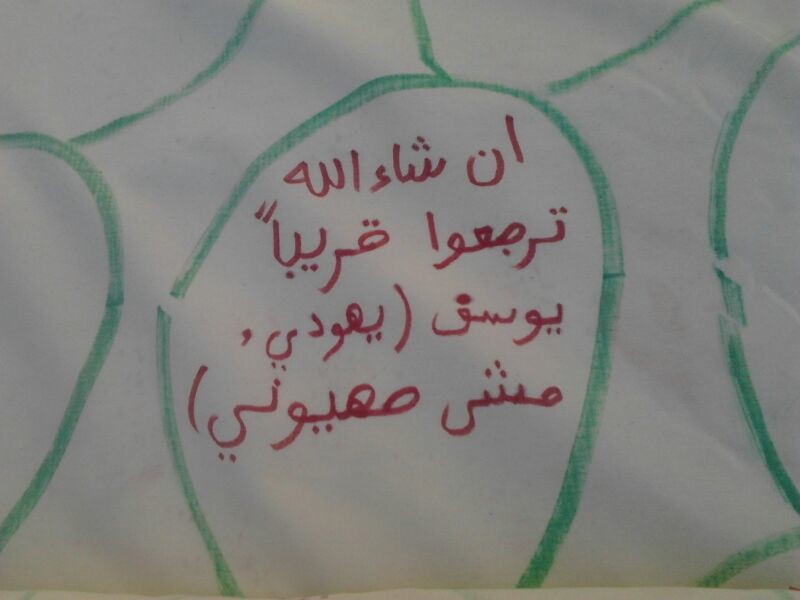 ان شاء الله
ترجعوا قريباً
يوسف (يهودي,
مش صهيوني)